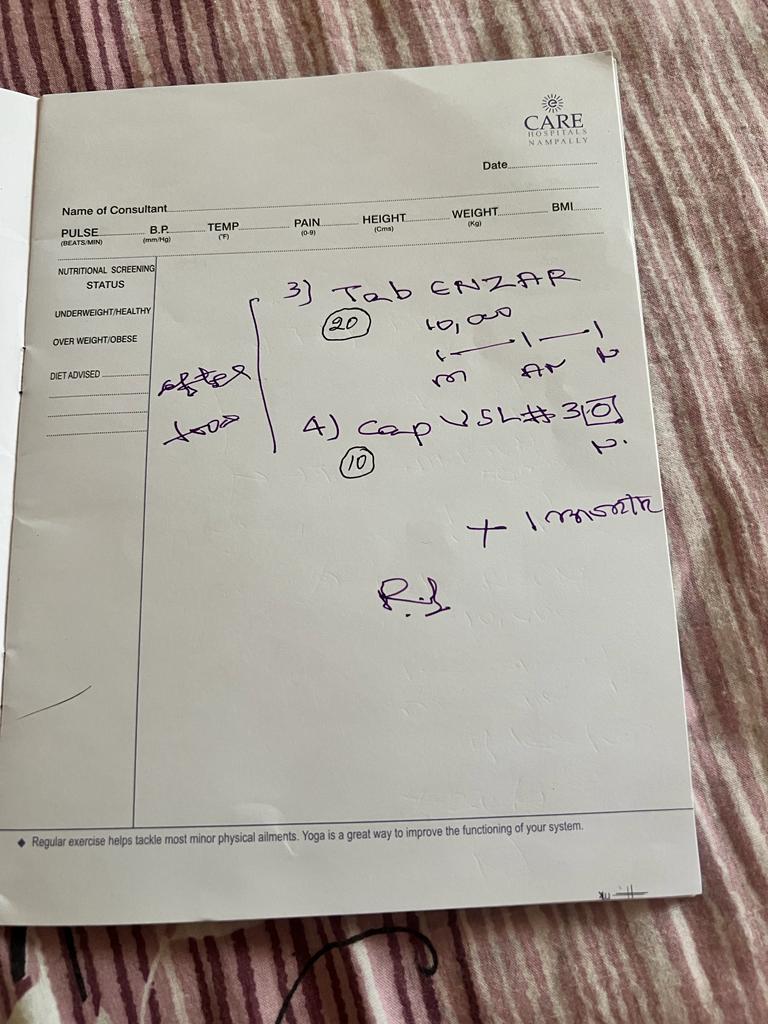 CARE
HOSPITALS
NAMPALLY
Date
Name of Consultant
PULSE B.P. TEMP PAIN HEIGHT WEIGHT BMI
(BEATS/MIN) (mm/Hg) (°F) (0-9) (Cms) (Kg)
NUTRITIONAL SCREENING
STATUS
UNDERWEIGHT/HEALTHY
OVER WEIGHT/OBESE
DIET ADVISED
3) Tab ENZAR
20 10,000
1 — 1 — 1
M AN N
after
food
4) Cap VSL#3 0
10 N.
+ 1 month
◆ Regular exercise helps tackle most minor physical ailments. Yoga is a great way to improve the functioning of your system.